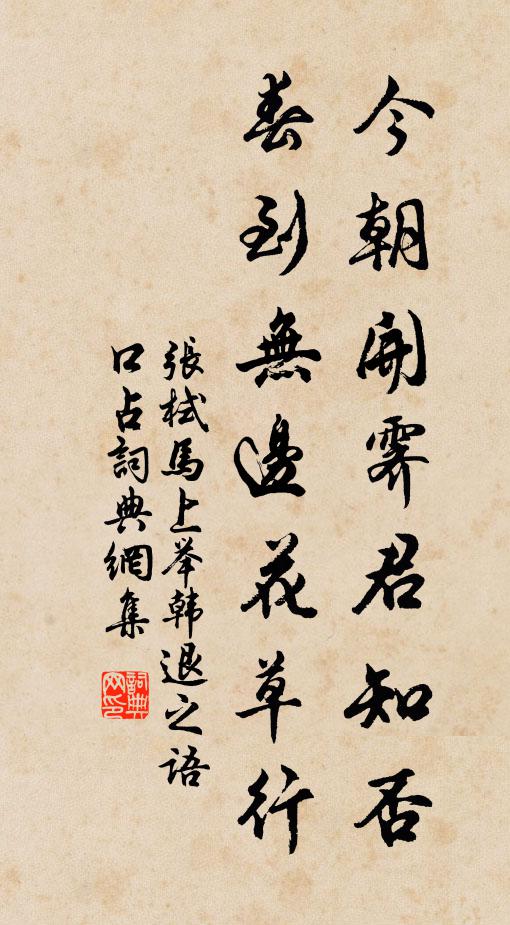 今朝開霽君知否
春到無邊花草行
張栻馬上举韩退之語
口占詞典網集
詞典网印